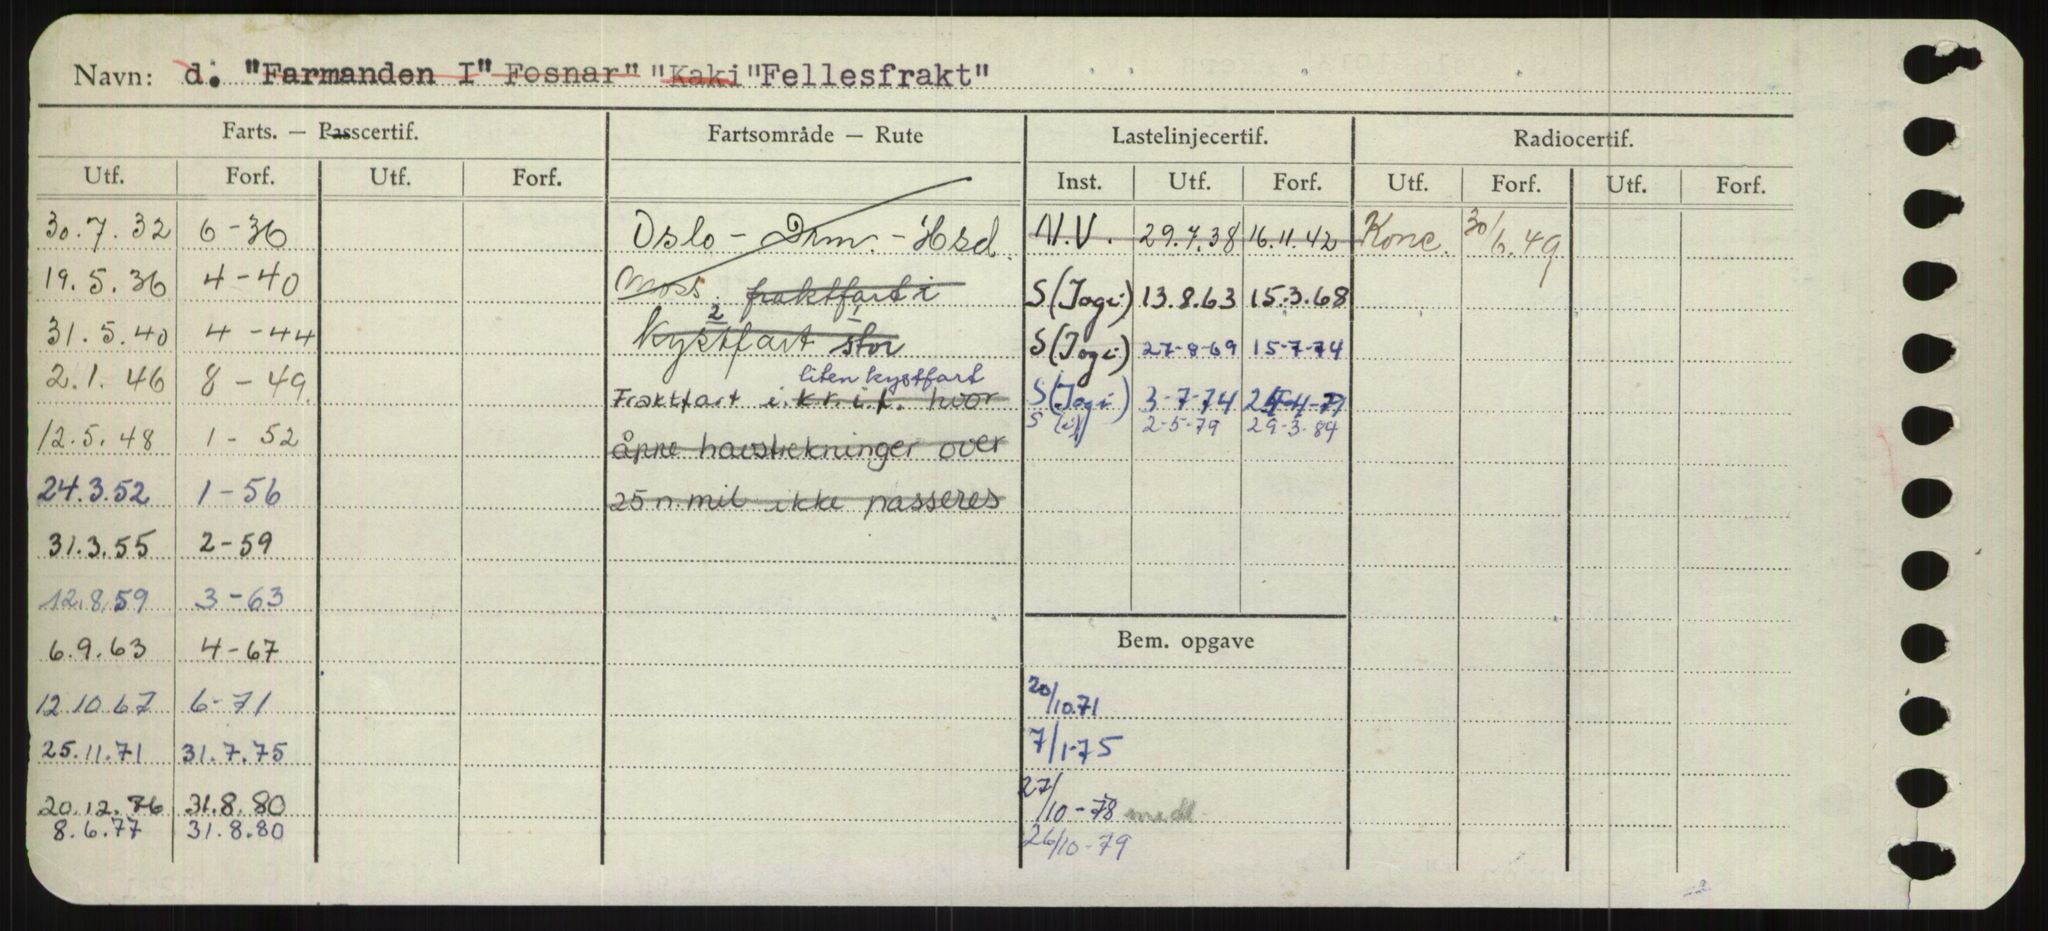 Navn: d: "Farmanden I" Fosnar" "Kaki "Fellesfrakt"
Farts. — Passcertif. Fartsområde — Rute Lastelinjecertif. Radiocertif.
Utf. Forf. Utf. Forf. Inst. Utf. Forf. Utf. Forf. Utf. Forf.
30.7.32 6-36 Oslo - Drm. - Hsd. N.V. 29.7.38 16.11.42 Konc. 30/6.49
19.5.36 4-40 Moss. fraktfart i S (Jogi) 13.8.63 15.3.68
31.5.40 4-44 2 kystfart stor S (Jogi) 27-8-69 15-7-74
liten kystfart
2.1.46 8-49. Fraktfart i. k.r.i.f. hvor S (Jogi) 3-7-74
S 2-5-79 29-3-84
12.5.48 1-52 åpne havstrekninger over
24.3.52 1-56 25 n.mil ikke passeres
31.3.55 2-59
12.8.59 3-63
Bem. opgave
6.9.63 4-67
12.10.67 6-71 20/10.71
25.11.71 31.7.75 7/1-75
20.12.76 31.8.80 27/10-78 medl.
8.6.77 31.8.80 26/10-79